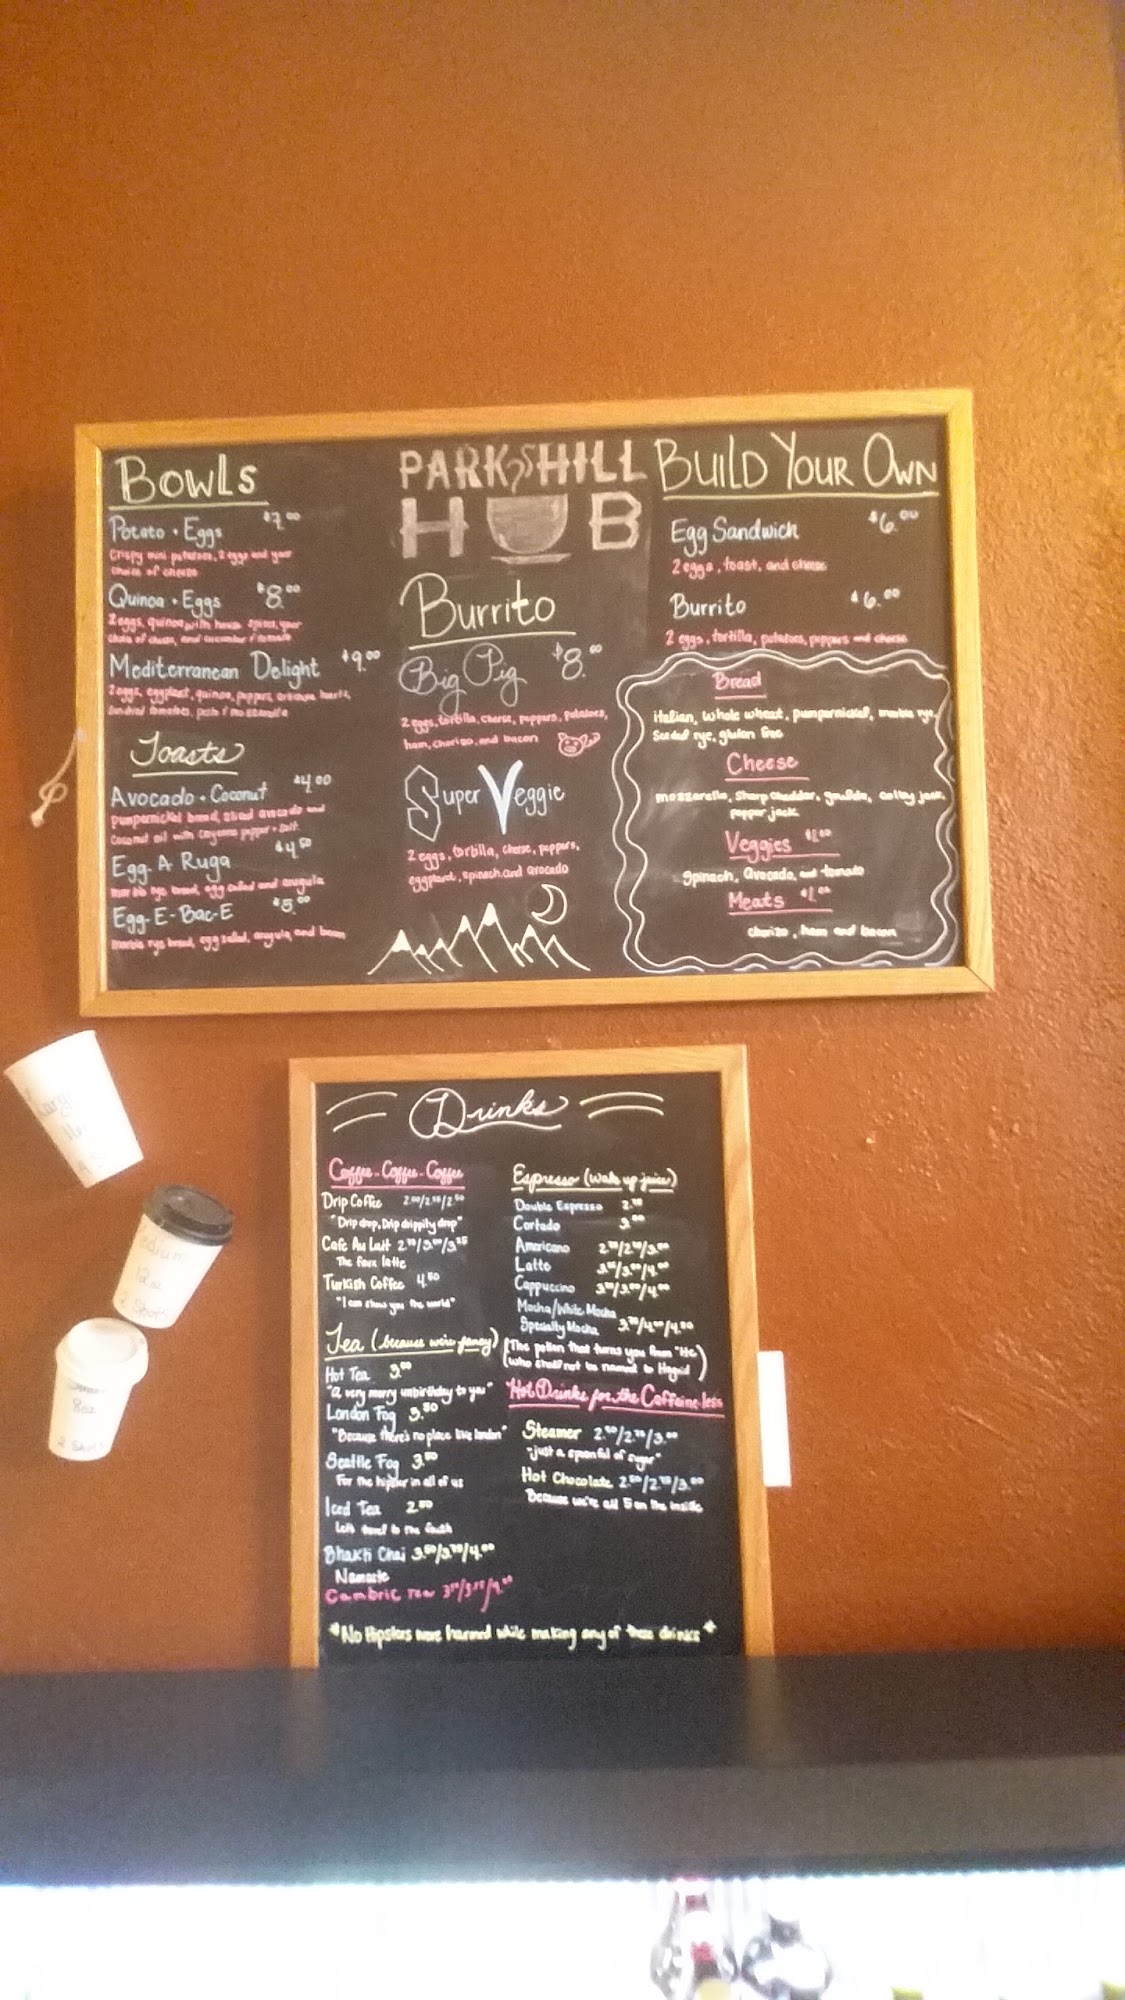 BOWLS
Potato + Eggs $7.00
Crispy mini potatoes, 2 eggs and your
choice of cheese
Quinoa + Eggs $8.00
2 eggs, quinoa with house spices, your
choice of cheese, and cucumber + tomato
Mediterranean Delight $9.00
2 eggs, eggplant, quinoa, peppers, artichoke hearts,
Sundried tomatoes, pesto + mozzarella
Toasts
Avocado + Coconut $4.00
pumpernickel bread, sliced avocado and
Coconut oil with Cayenne pepper + salt
Egg-A Ruga $4.50
marble rye bread, egg salad and arugula
Egg-E-Bac-E $5.00
marble rye bread, egg salad, arugula, and bacon
PARK HILL
HUB
Burrito
Big Pig $8.00
2 eggs, tortilla, cheese, peppers, potatoes,
ham, chorizo, and bacon
Super Veggie
2 eggs, tortilla, cheese, peppers,
eggplant, spinach and avocado
BUILD YOUR OWN
Egg Sandwich $6.00
2 eggs, toast, and cheese
Burrito $6.00
2 eggs, tortilla, potatoes, peppers and cheese
Bread
italian, whole wheat, pumpernickel, marble rye,
Seeded rye, gluten free
Cheese
mozzarella, Sharp cheddar, gouda, colby jack,
pepper jack
Veggies $1.00
Spinach, avocado, and tomato
Meats
chorizo, ham and bacon
Large
Medium
12oz
2 Shots
8oz
2 Shots
Drinks
Coffee-Coffee-Coffee
Drip Coffee
"Drip drop, Drip drippity drop"
Cafe Au Lait 2.75/3.00/3.25
The faux latte
Turkish Coffee 4.50
"I can show you the world"
Tea (because we're fancy)
Hot Tea 3.00
"A very merry unbirthday to you"
London Fog 3.50
"Because there's no place like london"
Seattle Fog 3.50
For the hipster in all of us
Iced Tea 2.50
Let's travel to the South
Bhakti Chai 3.50/3.75/4.00
Namaste
Cambric Tea
*No Hipsters were harmed while making any of these drinks*
Espresso (wake up juice)
Double Espresso
Cortado 3.00
Americano
Latte
Cappuccino
Mocha/White Mocha
Specialty Mocha
(The potion that turns you from "He
who shall not be named to Hagrid)
Hot Drinks for the Caffeine-less
Steamer 2.50/2.75/3.00
"just a spoonful of sugar"
Hot Chocolate 2.50/2.75/3.00
Because we're all 5 on the inside